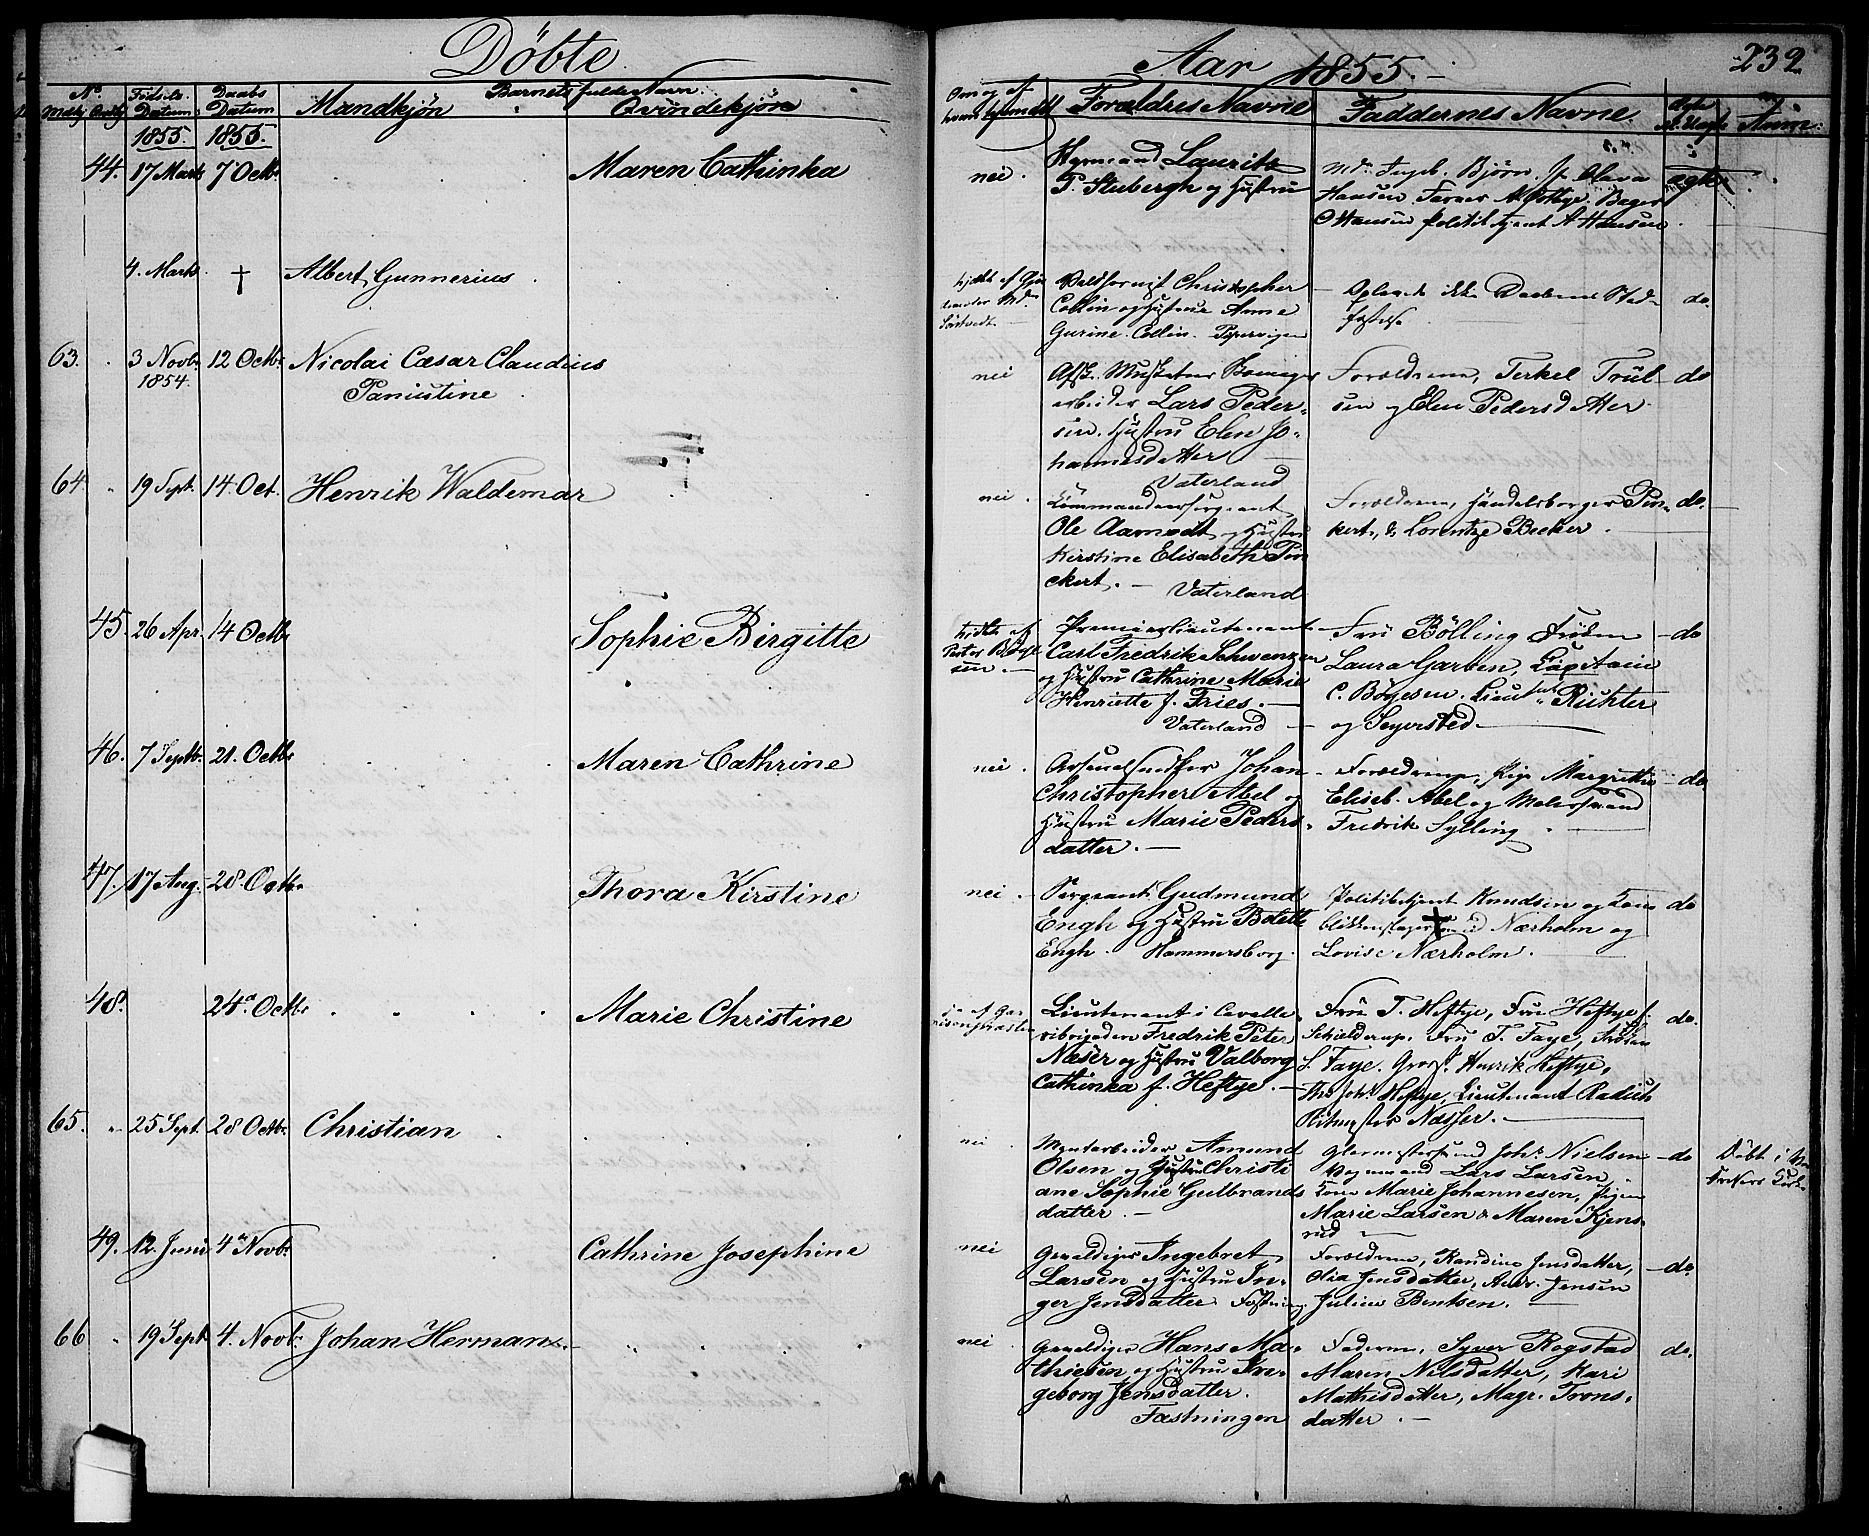 Döbte.
Aar 1855.
232
No.
Mdkj Qvkj
Fødsels Datum
Daabs Datum
Barnets fulde Navn.
Mandkjøn
Qvindekjøn
Om og af hvem hjemdöbt
Forældres Navne
Faddernes Navne
Anm:
1855. 1855.
44. 17 Marts 7 Octbr
Maren Cathinka
nei.
Laurits
P. Stubergh og Hustru
Md. Ingeb. Bjørn. Olava
Hansen
C Hansen Politibtjent A Hansen
ægte
4. Marts † Albert Gunnerius
Christopher
Collin og Hustrue Anne
Gurine Collin. Pipervigen
ikke Daabens Stad-
fæstelse
do.
63. 3 Novbr 1854. 12 Octbr Nicolai Cæsar Claudius
Paniustine
nei
Afsk. Musketeer
arbeider Lars Peder-
sen. Hustru Elen Jo-
hannesdatter
Vaterland
Forældrene, Terkel Trul-
sen og Elen Pedersdatter
do
64 19 Sept. 14. Oct. Henrik Waldemar
nei.
Commandeersergeant
Ole Aamodt og Hustru
Kirstine Elisabeth Pin
ckert.
Vaterland
Forældrene, Handelsborger Pin-
kert, & Lorentze Becker.
do.
45. 26 Apr. 14 Octbr
Sophie Birgitte
Premierlieutenant
Carl Fredrik Schwenzen
og Hustru Cathrine Marie
Henriette f. Fries.
Vaterland
Fru Bölling Frøken
Laura Garben, Capitain
C. Böyesen. Lieutnt Richter
og Seyersted.
do
46. 7 Septbr. 21. Octbr
Maren Cathrine
nei.
Arsenalsnedker Johan
Christopher Abel og
Hustru Marie Peders-
datter.
Forældrene, Pige Margrethe
Eliseb. Abel og Malersvend
Fredrik Sylling
do
47. 17 Aug. 28. Octbr
Thora Kirstine
nei.
Sergeant Gudmund
Engh og Hustru Bolette
Engh. Hammersborg.
Politibetjent Knudsen og Kone
Nærholm og
Lovise Nærholm.
do
48. 24de Octbr
Marie Christine
Lieutenant i Cavalle-
ribrigaden Fredrik Peter
Næser og Hustru Valborg
Cathinka f. Heftye.
Fru T. Heftye, Fru Heftye f.
Schielderup. Fru T. Faye, Frøken
S. Faye. Gross. Henrik Heftye,
Ths Johs Heftye, Lieutenant Radich
Ritmester Næsser.
do.
65. 25 Sept. 28 Octbr Christian
nei.
Myntarbeider Amund
Olsen og Hustru Christi
ane Sophie Gulbrands
datter.
Glarmestersvend Johs Nielsen
Vognmand Lars Larsen,
Kone Marie Johannesen, Pigen
Marie Larsen & Maren Kjens-
rud
do
Döbt i Vor
Frelsers Kirke
49. 12. Juni 4de Novbr
Cathrine Josephine
nei
Gevaldiger Ingebret
Larsen og Hustru In-
ger Jensdatter. Fæstning
Forældrene, Randine Jensdatter,
Olia Jensdatter, Andr. Jensen
Julius Bentsen.
do.
66 19 Sept 4. Novbr Johan Herman
nei.
Gevaldiger Hans Ma-
thiesen og Hustru In-
geborg Jensdatter.
Fæstningen
Faderen, Syver Rogstad
Maren Nilsdatter, Kari
Mathisdatter, Magr. Trons-
datter.
do.